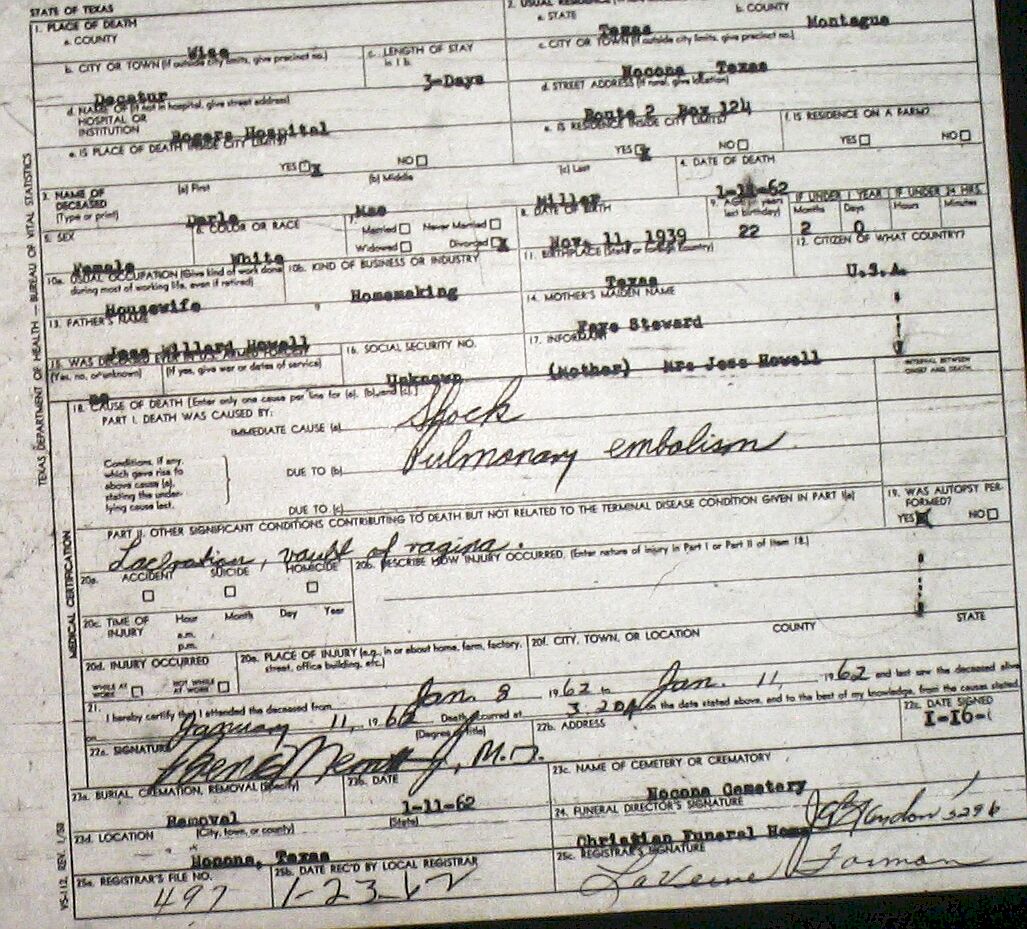 STATE OF TEXAS
1. PLACE OF DEATH
a. COUNTY
Wise
2. USUAL RESIDENCE
a. STATE
Texas
b. COUNTY
Montague
b. CITY OR TOWN (If outside city limits, give precinct no.)
Decatur
c. LENGTH OF STAY in 1b
3-Days
c. CITY OR TOWN (If outside city limits, give precinct no.)
Nocona, Texas
d. NAME OF (If not in hospital, give street address)
HOSPITAL OR
INSTITUTION
Rogers Hospital
d. STREET ADDRESS (If rural, give location)
Route 2 Box 124
e. IS PLACE OF DEATH INSIDE CITY LIMITS?
YES X NO
e. IS RESIDENCE INSIDE CITY LIMITS?
YES X NO
f. IS RESIDENCE ON A FARM?
YES NO
3. NAME OF
DECEASED
(Type or print)
(a) First
(b) Middle
(c) Last
Darla Mae Miller
4. DATE OF DEATH
1-11-62
5. SEX
Female
6. COLOR OR RACE
White
7.
Married Never Married
Widowed Divorced X
8. DATE OF BIRTH
Nov. 11, 1939
9. AGE (In years last birthday)
22
IF UNDER 1 YEAR
Months Days
2 0
IF UNDER 24 HRS.
Hours Minutes
10a. USUAL OCCUPATION (Give kind of work done during most of working life, even if retired)
Housewife
10b. KIND OF BUSINESS OR INDUSTRY
Homemaking
11. BIRTHPLACE (State or foreign country)
Texas
12. CITIZEN OF WHAT COUNTRY?
U.S.A.
13. FATHER'S NAME
Jess Willard Howell
14. MOTHER'S MAIDEN NAME
Faye Steward
15. WAS DECEASED EVER IN U.S. ARMED FORCES?
(Yes, no, or unknown) (If yes, give war or dates of service)
no
16. SOCIAL SECURITY NO.
Unknown
17. INFORMANT
(Mother) Mrs Jess Howell
18. CAUSE OF DEATH [Enter only one cause per line for (a), (b), and (c).]
INTERVAL BETWEEN
ONSET AND DEATH
PART I. DEATH WAS CAUSED BY:
IMMEDIATE CAUSE (a) Shock
Conditions, if any,
which gave rise to
above cause (a),
stating the under-
lying cause last.
DUE TO (b) Pulmonary embolism
DUE TO (c)
PART II. OTHER SIGNIFICANT CONDITIONS CONTRIBUTING TO DEATH BUT NOT RELATED TO THE TERMINAL DISEASE CONDITION GIVEN IN PART I(a)
Laceration, vault of vagina.
19. WAS AUTOPSY PER-
FORMED?
YES NO
20a. ACCIDENT SUICIDE HOMICIDE
20b. DESCRIBE HOW INJURY OCCURRED. (Enter nature of injury in Part I or Part II of item 18.)
20c. TIME OF
INJURY
Hour Month Day Year
a.m.
p.m.
20d. INJURY OCCURRED
WHILE AT WORK NOT WHILE AT WORK
20e. PLACE OF INJURY (e.g., in or about home, farm, factory, street, office building, etc.)
20f. CITY, TOWN, OR LOCATION COUNTY STATE
21. I hereby certify that I attended the deceased from Jan. 8 1962 to Jan. 11, 1962 and last saw the deceased alive
on January 11, 1962 Death occurred at 3:20 on the date stated above, and to the best of my knowledge, from the causes stated.
22a. SIGNATURE (Degree or title)
M.D.
22b. ADDRESS
22c. DATE SIGNED
1-16-
23a. BURIAL, CREMATION, REMOVAL (Specify)
Removal
23b. DATE
1-11-62
23c. NAME OF CEMETERY OR CREMATORY
Nocona Cemetery
23d. LOCATION (City, town, or county) (State)
Nocona, Texas
24. FUNERAL DIRECTOR'S SIGNATURE
Christian Funeral Home
25a. REGISTRAR'S FILE NO.
497
25b. DATE REC'D BY LOCAL REGISTRAR
1-23-62
25c. REGISTRAR'S SIGNATURE
LaVerne Forman
TEXAS DEPARTMENT OF HEALTH — BUREAU OF VITAL STATISTICS
MEDICAL CERTIFICATION
VS-112, REV. 1/58